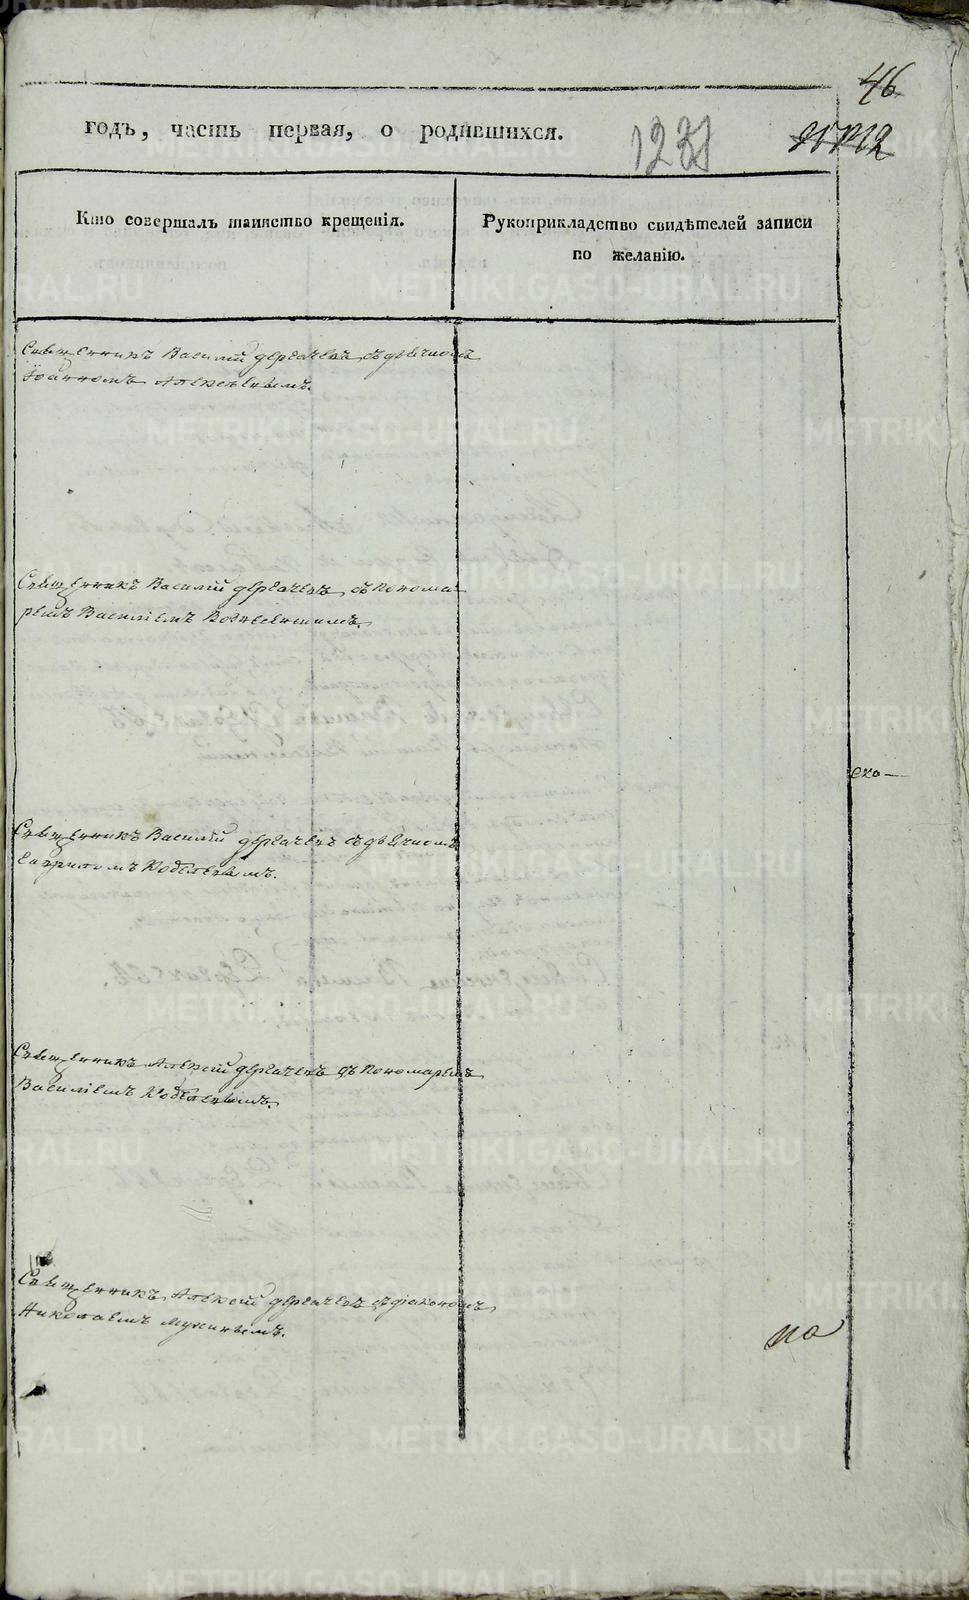 46
годъ, часть первая, о родившихся.
Кто совершалъ таинство крещенія.
Рукоприкладство свидѣтелей записи
по желанію.
Священникъ Василій Дергачевъ съ дьячкомъ
Іоанномъ Алексѣевымъ.
Священникъ Василій Дергачевъ съ понома-
ремъ Василіемъ Вознесенскимъ.
Священникъ Василій Дергачевъ съ дьячкомъ
Гавриломъ Кобелевымъ.
Священникъ Алексій Дергачевъ съ пономаремъ
Василіемъ Кобелевымъ.
Священникъ Алексій Дергачевъ съ діакономъ
Николаемъ Мухинымъ.
по
METRIKI.GASO-URAL.RU